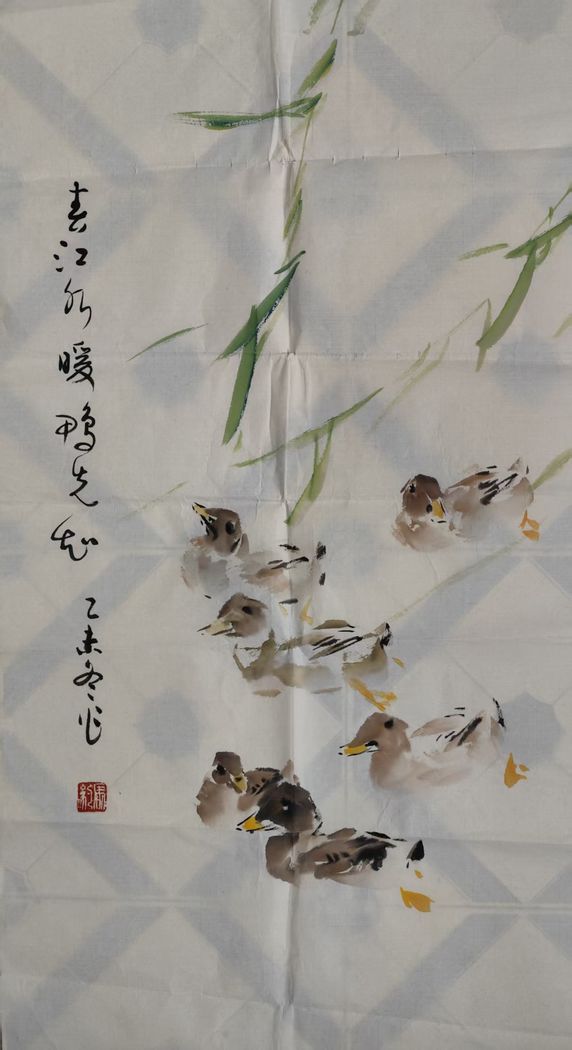 春江水暖鸭先知
乙未冬作